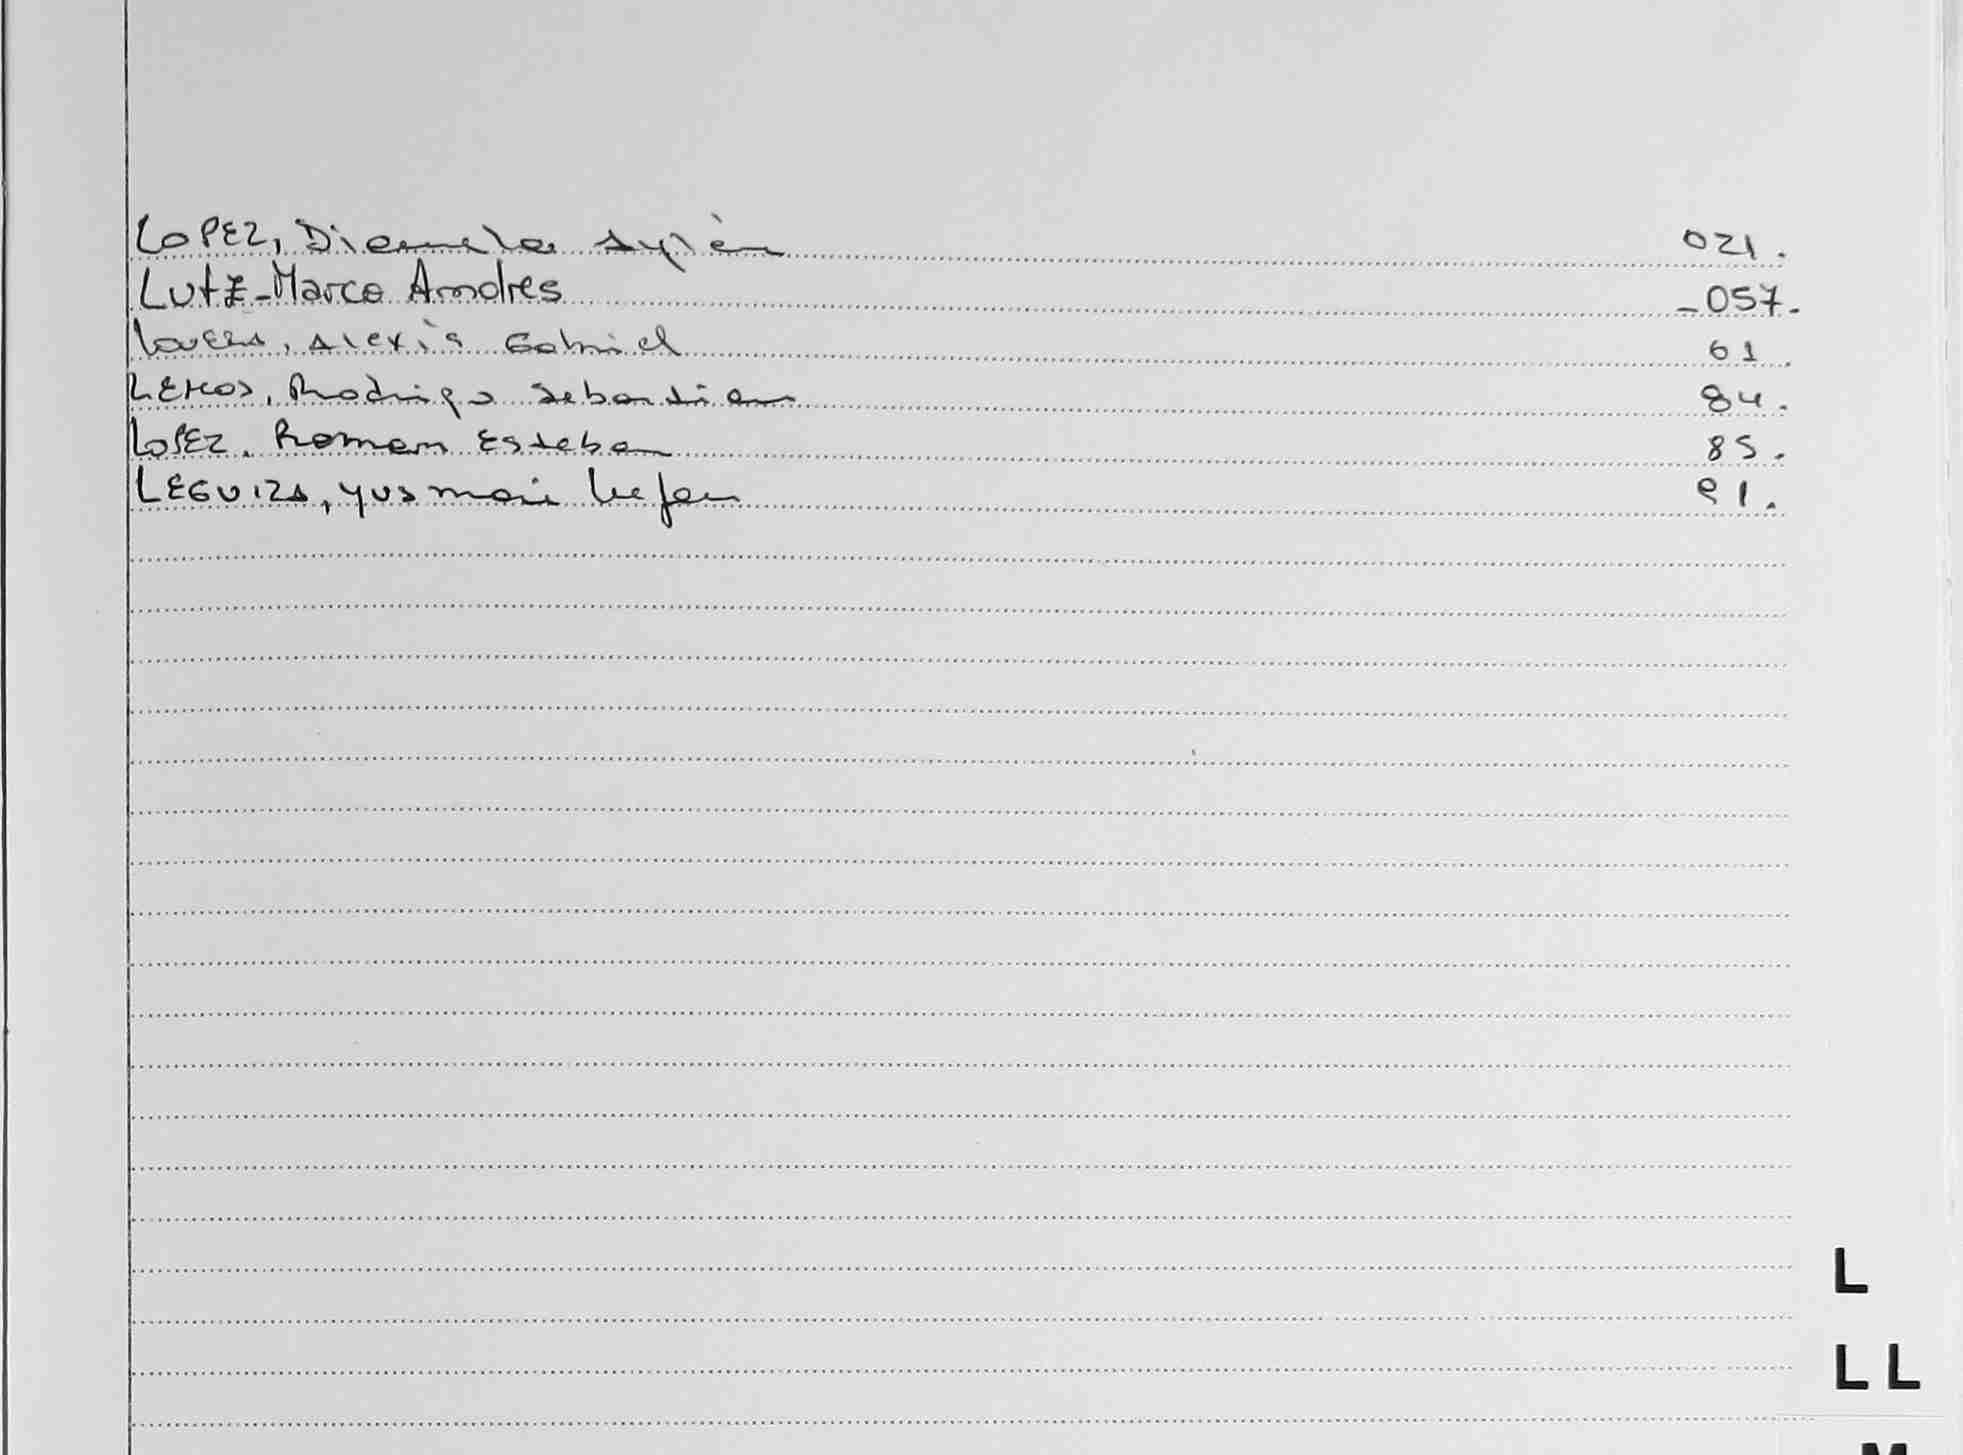 LOPEZ, Diamela Aylèn 021.
Lutz-Marco Andres -057.
Alexis Gabriel 61.
LEMOS, Rodrigo Sebastian 84.
LOPEZ, Roman Esteban 85.
LEGUIZA, 91.
L
LL
M